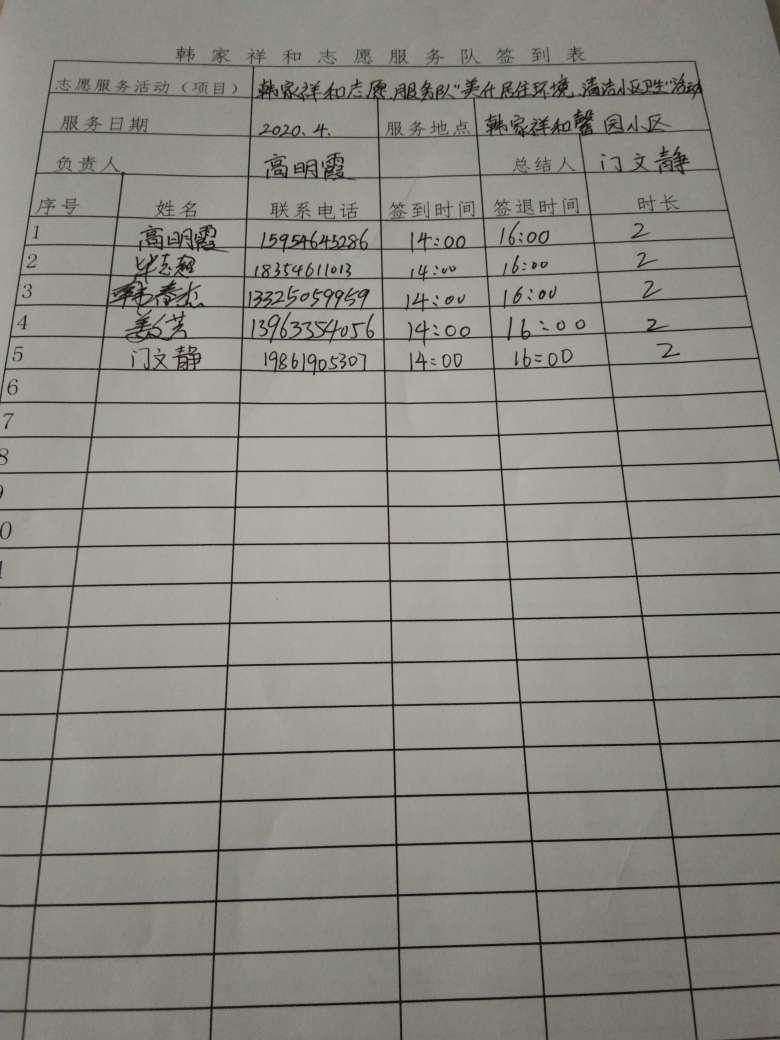 韩家祥和志愿服务队签到表
志愿服务活动（项目） 韩家祥和志愿服务队"美化居住环境、清洁小区卫生"活动
服务日期 2020.4. 服务地点 韩家祥和馨园小区
负责人 高明霞 总结人 门文静
序号 姓名 联系电话 签到时间 签退时间 时长
1 高明霞 15954645286 14:00 16:00 2
2 毕志超 18354611013 14:00 16:00 2
3 韩春杰 13325059959 14:00 16:00 2
4 姜芳 13963354056 14:00 16:00 2
5 门文静 19861905307 14:00 16:00 2
6
7
8